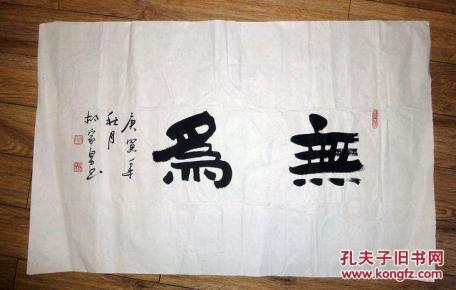 無為
庚寅年
秋月
家泉书
孔夫子旧书网
www.kongfz.com